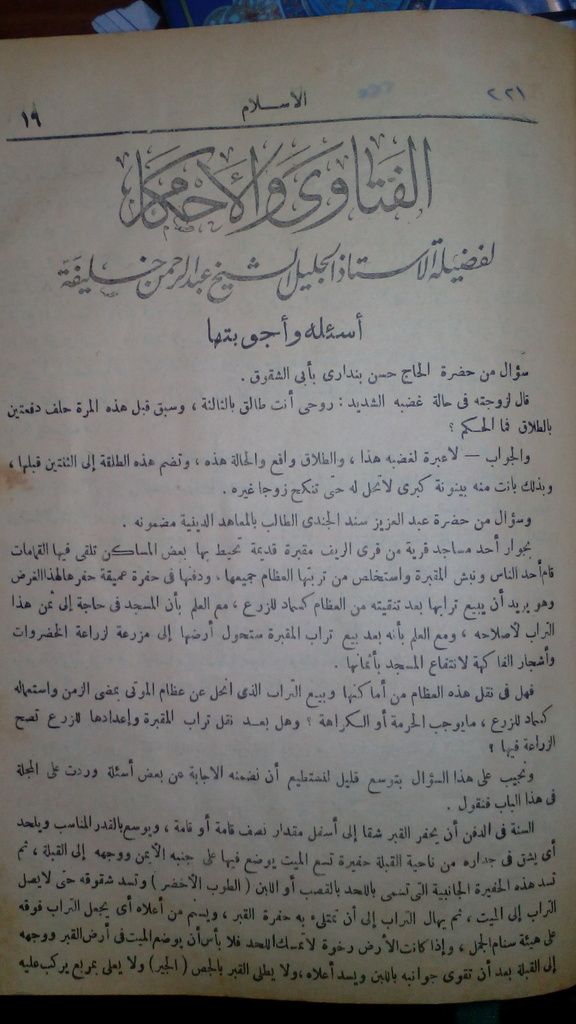 ٢٢١ الاسلام ١٩
الفتاوى والأحكام
لفضيلة الاستاذ الجليل الشيخ عبد الرحمن خليفة
أسئله وأجوبتها
سؤال من حضرة الحاج حسن بندارى بأبى الشقوق .
قال لزوجته فى حالة غضبه الشديد : روحى أنت طالق بالثالثة ، وسبق قبل هذه المرة حلف دفعتين
بالطلاق فما الحكم ؟
والجواب — لاعبرة لغضبه هذا ، والطلاق واقع والحالة هذه ، وتضم هذه الطلقة إلى الثنتين قبلها ،
وبذلك بانت منه بينونة كبرى لاتحل له حتى تنكح زوجا غيره .
وسؤال من حضرة عبد العزيز سند الجندى الطالب بالمعاهد الدينية مضمونه .
بجوار أحد مساجد قرية من قرى الريف مقبرة قديمة تحيط بها بعض المساكن تلقى فيها القمامات
قام أحد الناس ونبش المقبرة واستخلص من تربتها العظام جميعها ، ودفنها فى حفرة عميقة حفرها لهذا الغرض
وهو يريد أن يبيع ترابها بعد تنقيته من العظام كسماد للزرع ، مع العلم بأن المسجد فى حاجة إلى ثمن هذا
التراب لاصلاحه ، ومع العلم بأنه بعد بيع تراب المقبرة ستحول أرضها إلى مزرعة لزراعة الخضروات
وأشجار الفاكهة لانتفاع المسجد بأثمانها .
فهل فى نقل هذه العظام من أماكنها وبيع التراب الذى انحل عن عظام الموتى بمضى الزمن واستعماله
كسماد للزرع ، مايوجب الحرمة أو الكراهة ؟ وهل بعد نقل تراب المقبرة وإعدادها للزرع تصح
الزراعة فيها ؟
ونجيب على هذا السؤال بتوسع قليل لنستطيع أن نضمنه الاجابة عن بعض أسئلة وردت على المجلة
فى هذا الباب فنقول .
السنة فى الدفن أن يحفر القبر شقا إلى أسفل مقدار نصف قامة أو قامة ، ويوسع بالقدر المناسب ويلحد
أى يشق فى جداره من ناحية القبلة حفيرة تسع الميت يوضع فيها على جنبه الأيمن ووجهه إلى القبلة ، ثم
تسد هذه الحفيرة الجانبية التى تسمى باللحد بالقصب أو اللبن ( الطوب الأخضر ) وتسد شقوقه حتى لا يصل
التراب إلى الميت ، ثم يهال التراب إلى أن تمتلىء به حفرة القبر ، ويسنم من أعلاه أى يجعل التراب فوقه
على هيئة سنام الجمل ، وإذا كانت الأرض رخوة لا تمسك اللحد فلا بأس أن يوضع الميت فى أرض القبر ووجهه
إلى القبلة بعد أن تقوى جوانبه باللبن ويسد أعلاه ، ولا يطلى القبر بالجص ( الجير ) ولا يعلى بمربع يركب عليه